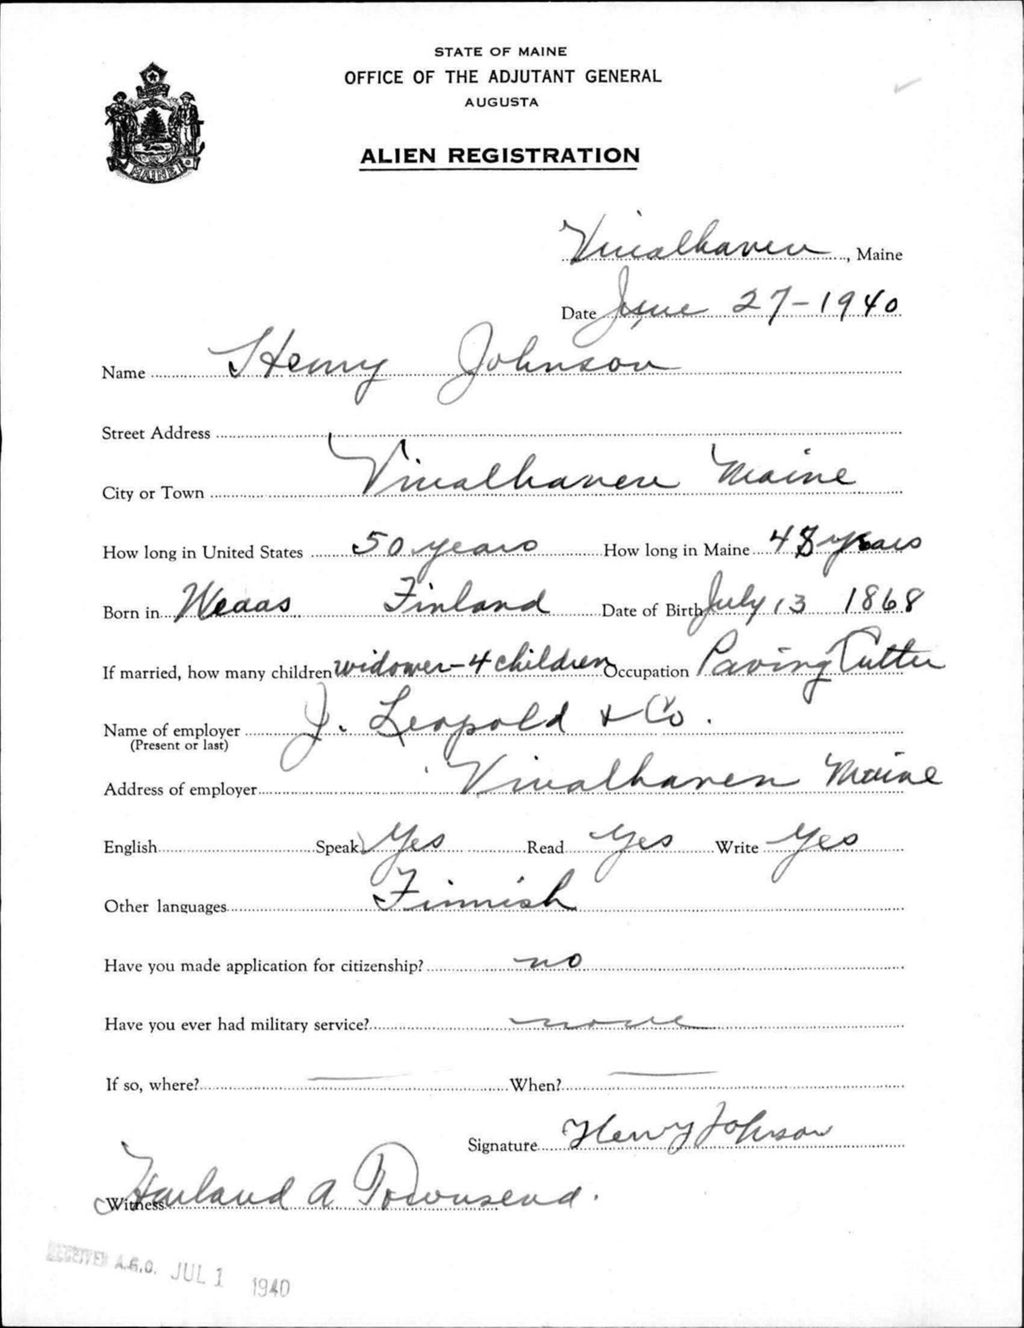 STATE OF MAINE
OFFICE OF THE ADJUTANT GENERAL
AUGUSTA
ALIEN REGISTRATION
MAINE
Vinalhaven, Maine
Date June 27-1940
Name Henry Johnson
Street Address
City or Town Vinalhaven Maine
How long in United States 50 years How long in Maine 48 years
Born in Weaas Finland Date of Birth July 13 1868
If married, how many children widower-4 children Occupation Paving Cutter
Name of employer J. Leopold & Co.
(Present or last)
Address of employer Vinalhaven Maine
English Speak Yes Read Yes Write Yes
Other languages Finnish
Have you made application for citizenship? no
Have you ever had military service? none
If so, where? — When? —
Signature Henry Johnson
Witness Harland A Townsend.
RECEIVED A.G.O. JUL 1 1940